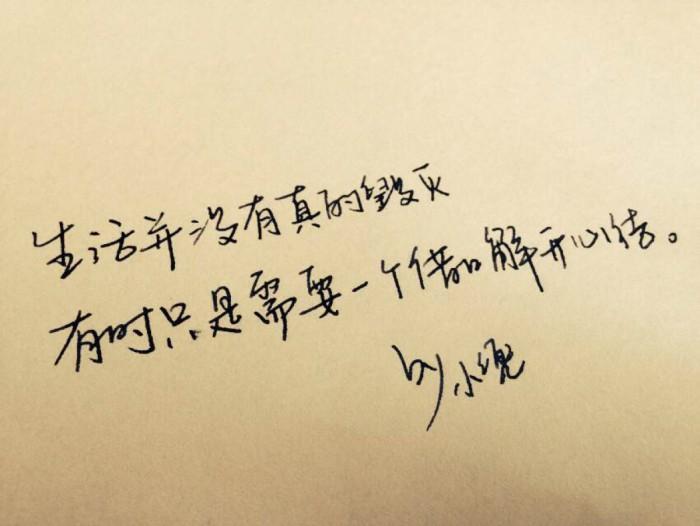 生活并没有真的毁灭
有时只是需要一个借口解开心结。
by 小倪